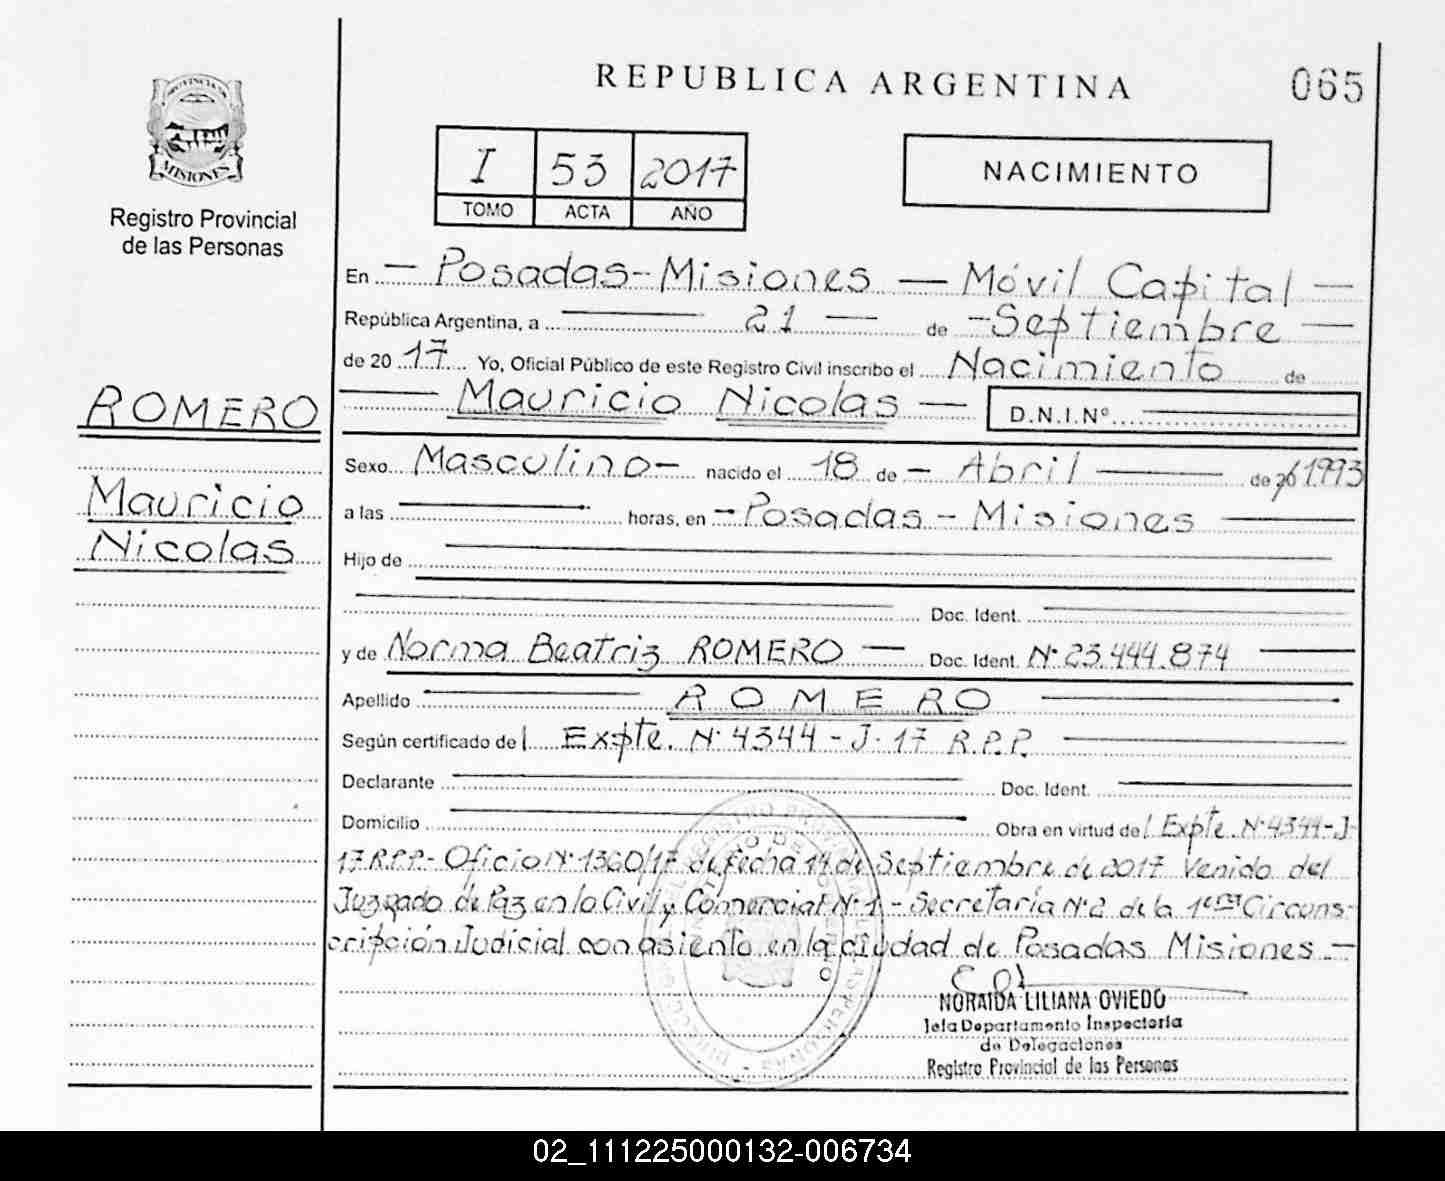 REPUBLICA ARGENTINA
065
PROVINCIA DE
MISIONES
Registro Provincial
de las Personas
I 53 2017
TOMO ACTA AÑO
NACIMIENTO
En — Posadas-Misiones — Móvil Capital —
República Argentina, a — 21 — de -Septiembre —
de 20 17 Yo, Oficial Público de este Registro Civil inscribo el Nacimiento de
— Mauricio Nicolas — D.N.I.Nº
ROMERO
Mauricio
Nicolas
Sexo Masculino- nacido el 18 de - Abril — de 1993
a las — horas, en -Posadas - Misiones —
Hijo de
Doc. Ident.
y de Norma Beatriz ROMERO — Doc. Ident. Nº 23.444.874 —
Apellido — ROMERO —
Según certificado del Expte. Nº 4344 - J- 17 R.P.P. —
Declarante — Doc. Ident. —
Domicilio — Obra en virtud del Expte. Nº 4344-J-
17 R.P.P.- Oficio Nº 1360/17 de fecha 14 de Septiembre de 2017 Venido del
Juzgado de Paz en lo Civil y Comercial Nº 1 - Secretaría Nº 2 de la 1era Circuns-
cripción Judicial con asiento en la ciudad de Posadas Misiones.-
NORAIDA LILIANA OVIEDO
Jefa Departamento Inspectoria
de Delegaciones
Registro Provincial de las Personas
02_111225000132-006734